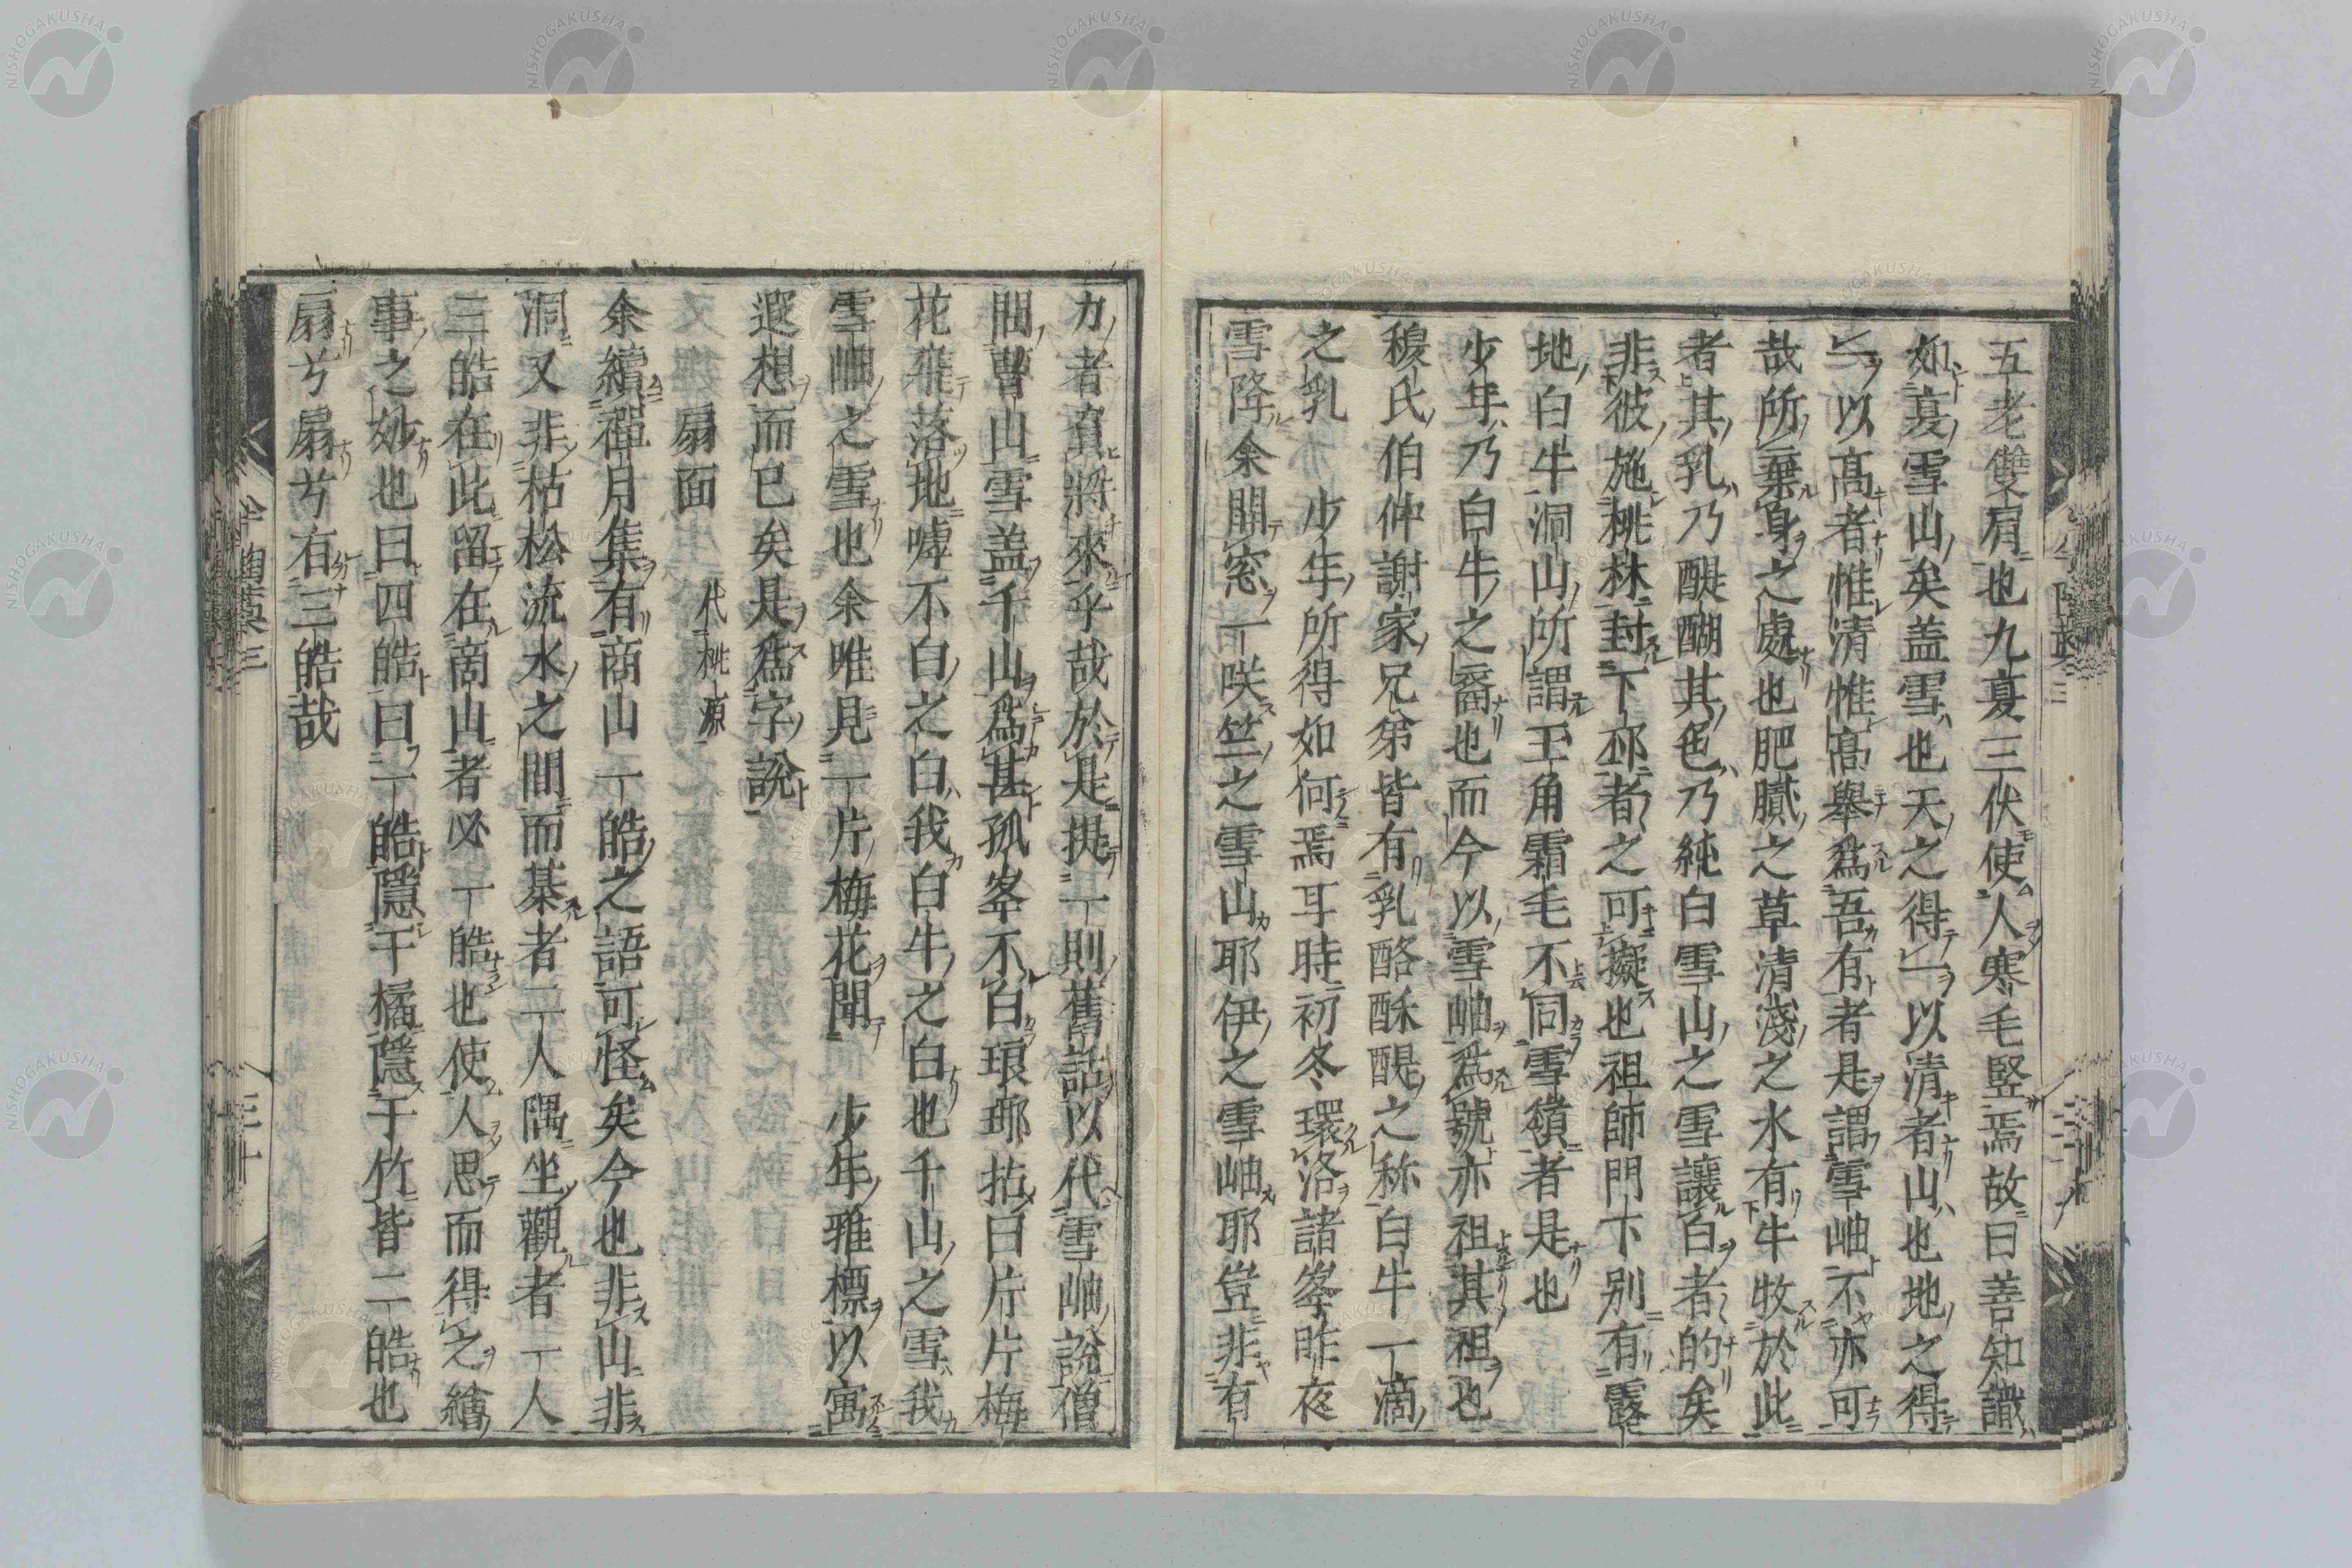 五老雙肩也九夏三伏使人寒毛竪焉故曰善知識
如夏雪山矣盖雪也天之得一以清者山也地之得
一以高者惟清惟高舉爲吾有者是謂雪岫不亦可
哉所棄身之處也肥膩之草清淺之水有牛牧於此
者其乳乃醍醐其色乃純白雪山之雪讓白者的矣
非彼施桃林封下邳者之可擬也祖師門下別有露
地白牛洞山所謂玉角霜毛不同雪嶺者是也
少年乃白牛之裔也而今以雪岫爲號亦祖其祖也
穆氏伯仲謝家兄弟皆有乳酪酥醍之称白牛一滴
之乳 少年所得如何焉耳時初冬環洛諸峯昨夜
雪降余開窓一咲竺之雪山耶伊之雪岫耶豈非有
力者負將來乎哉於是提一則舊話以代雪岫說僧
問曹山雪盖千山爲甚孤峯不白琅琊拈曰片片梅
花飛落地嘑不白之白我白牛之白也千山之雪我
雪岫之雪也余唯見一片梅花聞 少年雅標以寓
遐想而已矣是爲字說
扇面 代桃源
余續禪月集有商山一皓之語可怪矣今也非山非
洞又非枯松流水之間而棊者二人隅坐觀者一人
三皓在此留在商山者必一皓也使人思而得之繪
事之妙也曰四皓曰一皓隱于橘隱于竹皆二皓也
扇兮扇兮有三皓哉
半陶藁三
三十